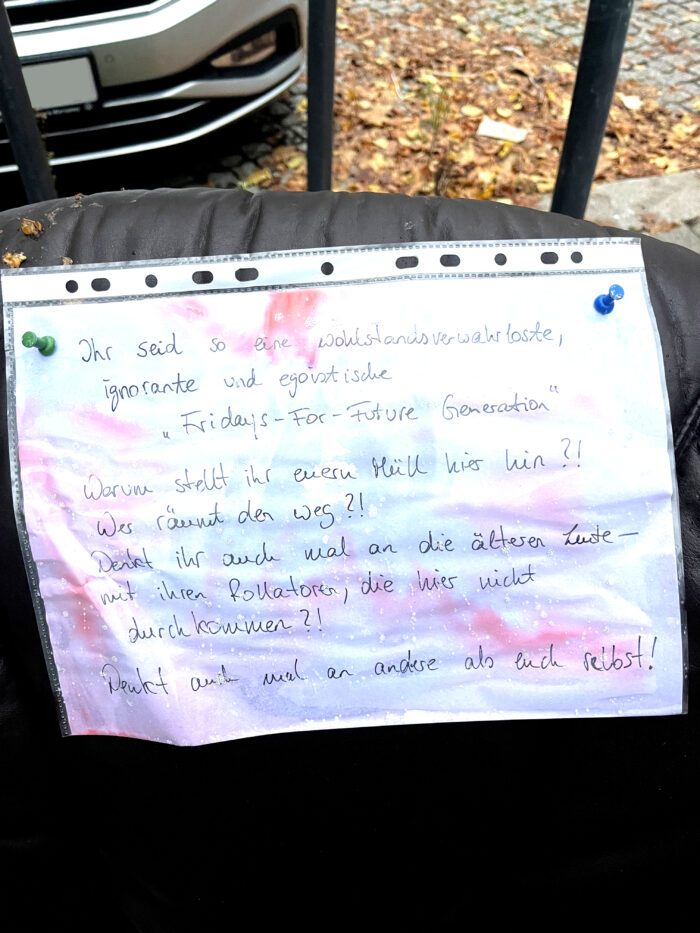 Ihr seid so eine wohlstandsverwahrloste,
ignorante und egoistische
„Fridays-For-Future Generation"
Warum stellt ihr euern Müll hier hin?!
Wer räumt den weg?!
Denkt ihr auch mal an die älteren Leute –
mit ihren Rollatoren, die hier nicht
durchkommen?!
Denkt auch mal an andere als euch selbst!